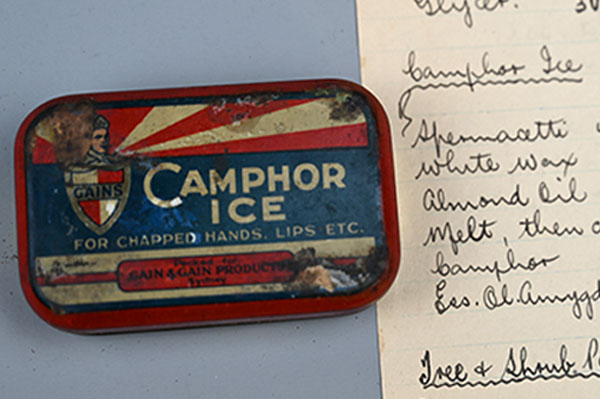 GAINS
CAMPHOR
ICE
FOR CHAPPED HANDS, LIPS ETC.
Packed for
GAIN & GAIN PRODUCTS
Sydney
Glycer.
Camphor Ice
Spermacetti
White Wax
Almond Oil
Melt, then
Camphor
Ess. Ol. Amygd
Tree & Shrub